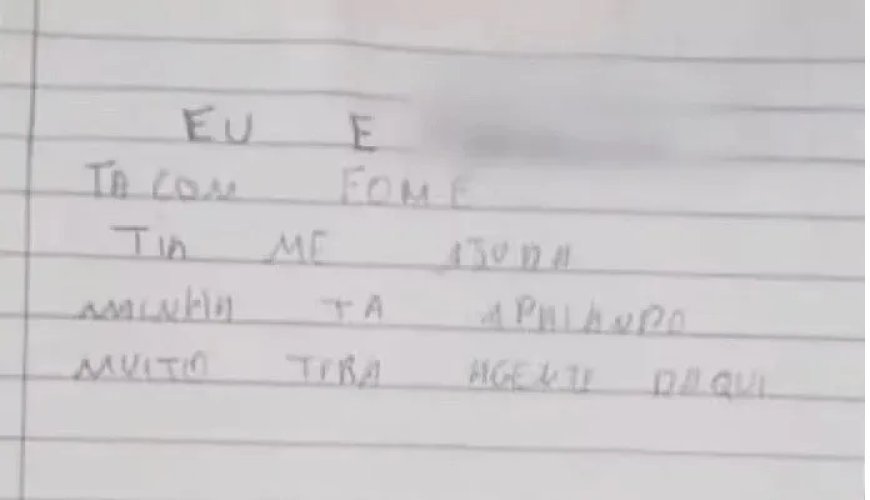 EU E
TA COM FOME
TIA ME AJUDA
MINHA TA APANHANDO
MUITO TIRA AGENTE DAQUI